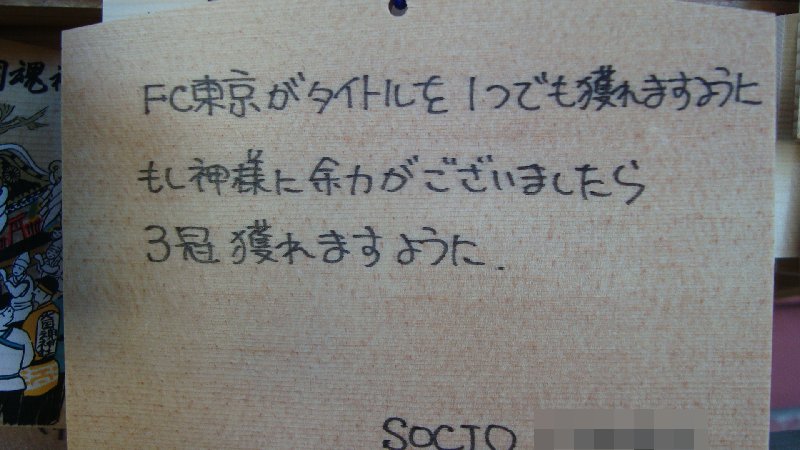 FC東京がタイトルを1つでも獲れますように
もし神様に余力がございましたら
3冠獲れますように.
SOCIO